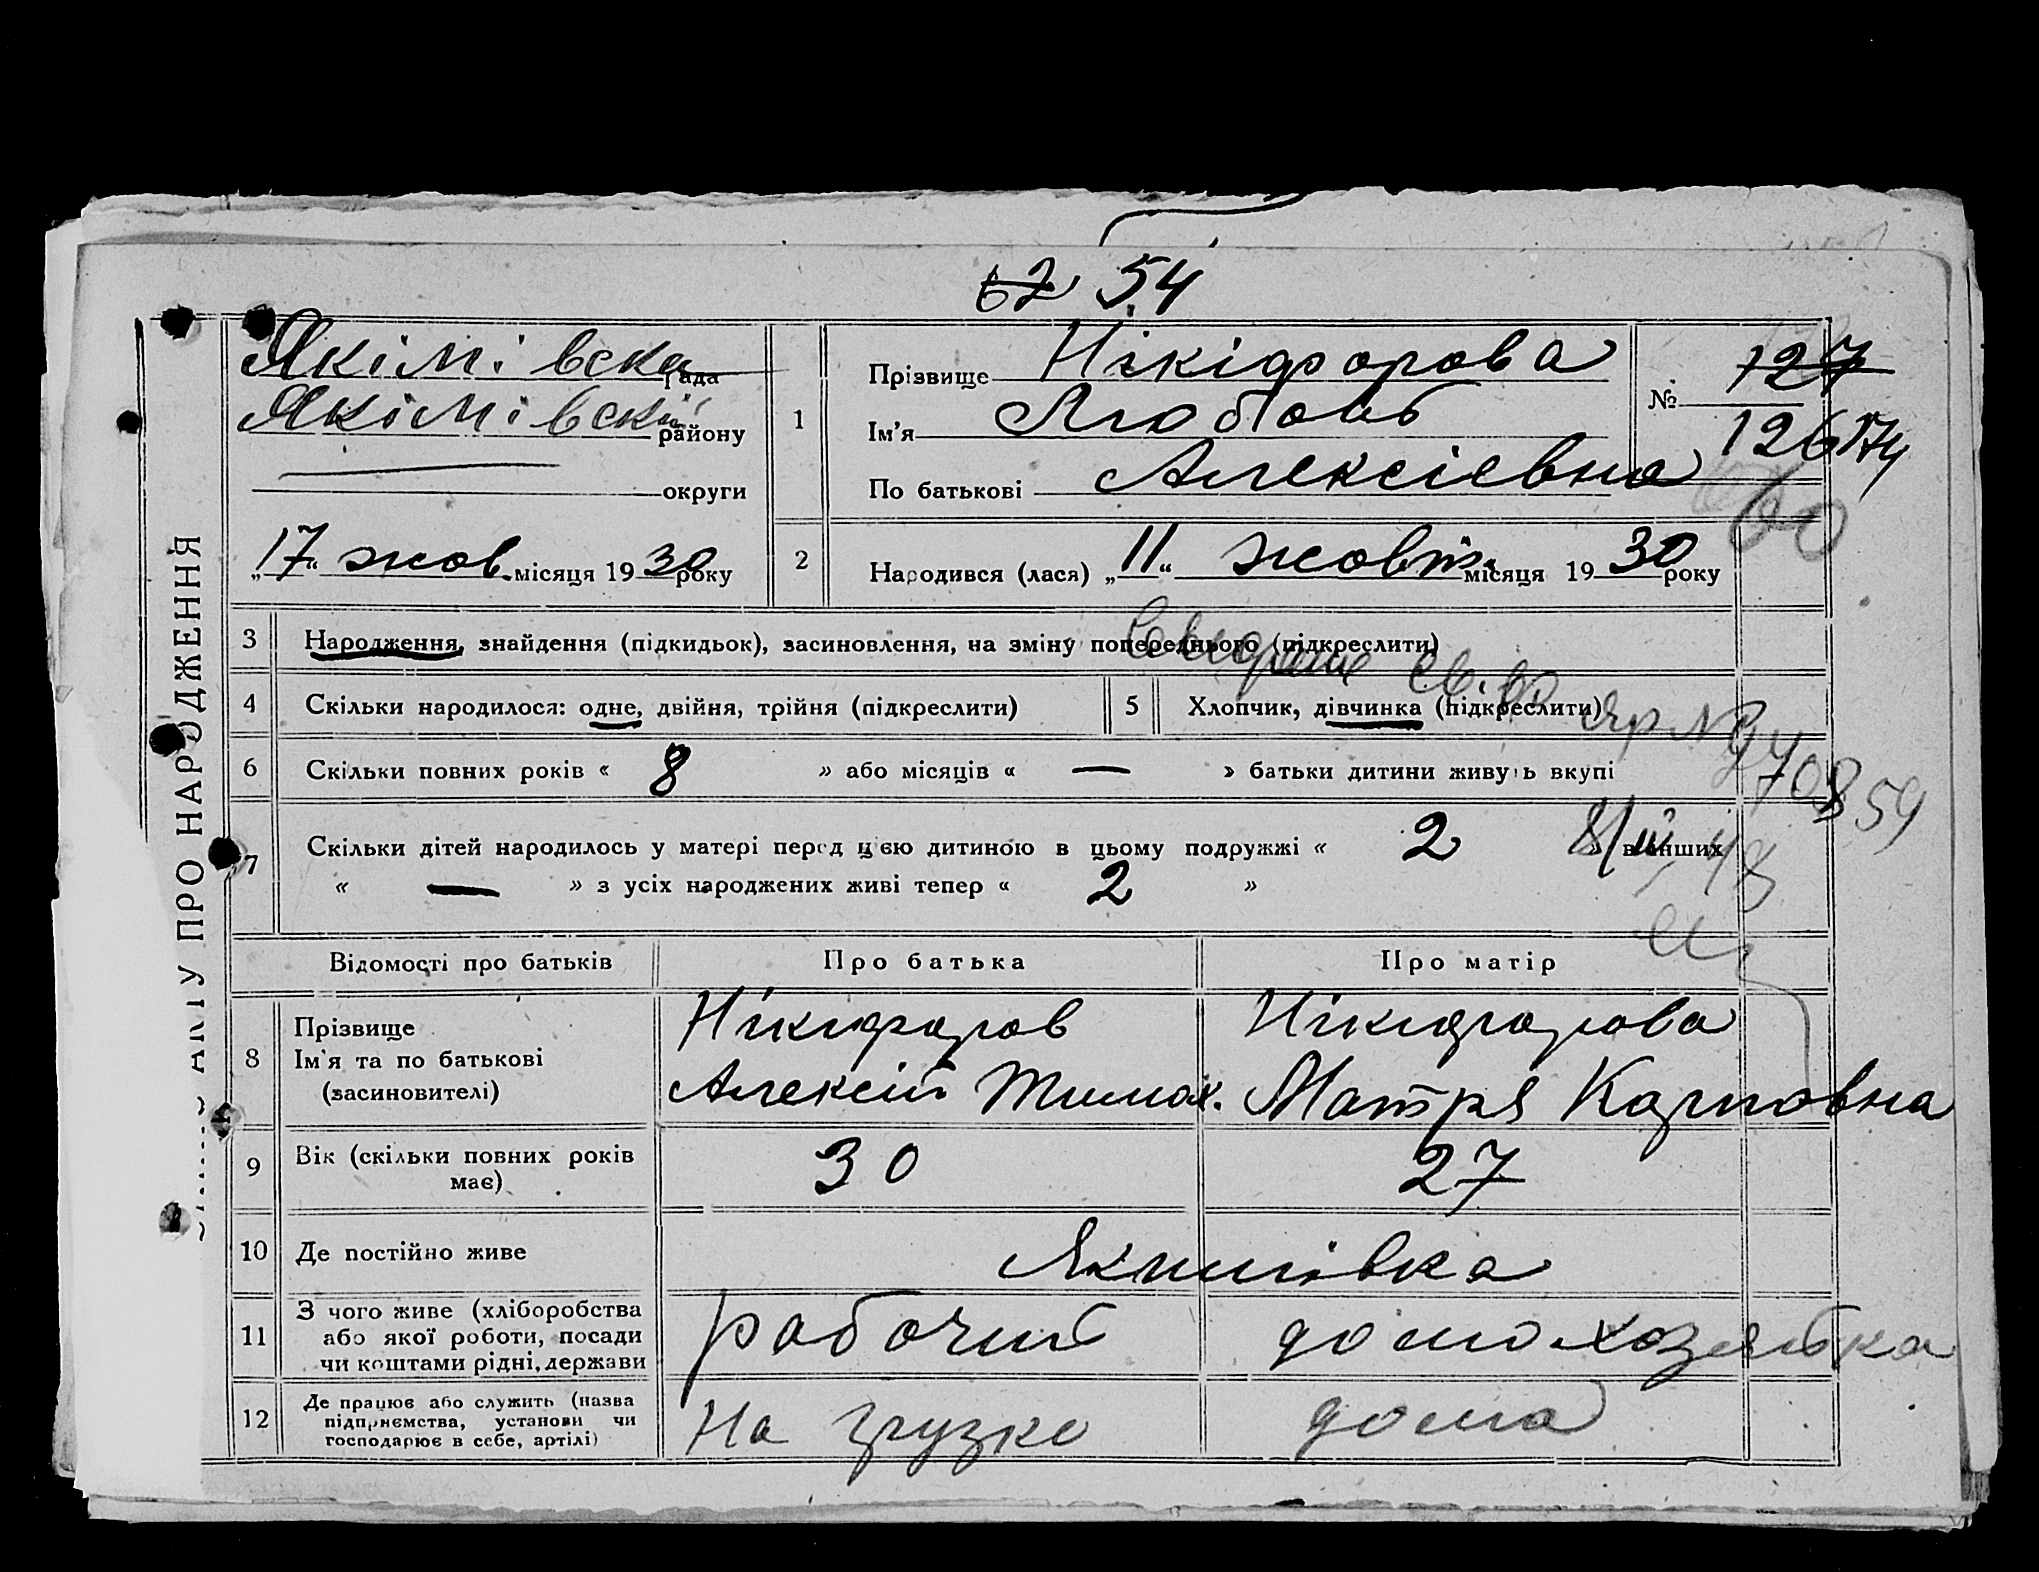 67 54
Якімівска рада
Якімівский району
округи
„17“ жов. місяця 1930 року
1
Прізвище Нікіфорова
Ім'я Любовь
По батькові Алексієвна
№ 127
126
60
2
Народився (лася) „11“ жовт. місяця 1930 року
АКТУ ПРО НАРОДЖЕННЯ
3 Народження, знайдення (підкидьок), засиновлення, на зміну попереднього (підкреслити)
4 Скільки народилося: одне, двійня, трійня (підкреслити) 5 Хлопчик, дівчинка (підкреслити)
6 Скільки повних років « 8 » або місяців « — » батьки дитини живуть вкупі
7 Скільки дітей народилось у матері перед цією дитиною в цьому подружжі « 2 в инших
« — » з усіх народжених живі тепер « 2 »
Відомості про батьків Про батька Про матір
8 Прізвище Нікифоров Нікифорова
Ім'я та по батькові Алексій Тимох. Матря Карповна
(засиновителі)
9 Вік (скільки повних років має) 30 27
10 Де постійно живе Якимівка
11 З чого живе (хліборобства
або якої роботи, посади рабочий домохозяйка
чи коштами рідні, держави
12 Де працює або служить (назва
підприємства, установи чи На грузке дома
господарює в себе, артілі)